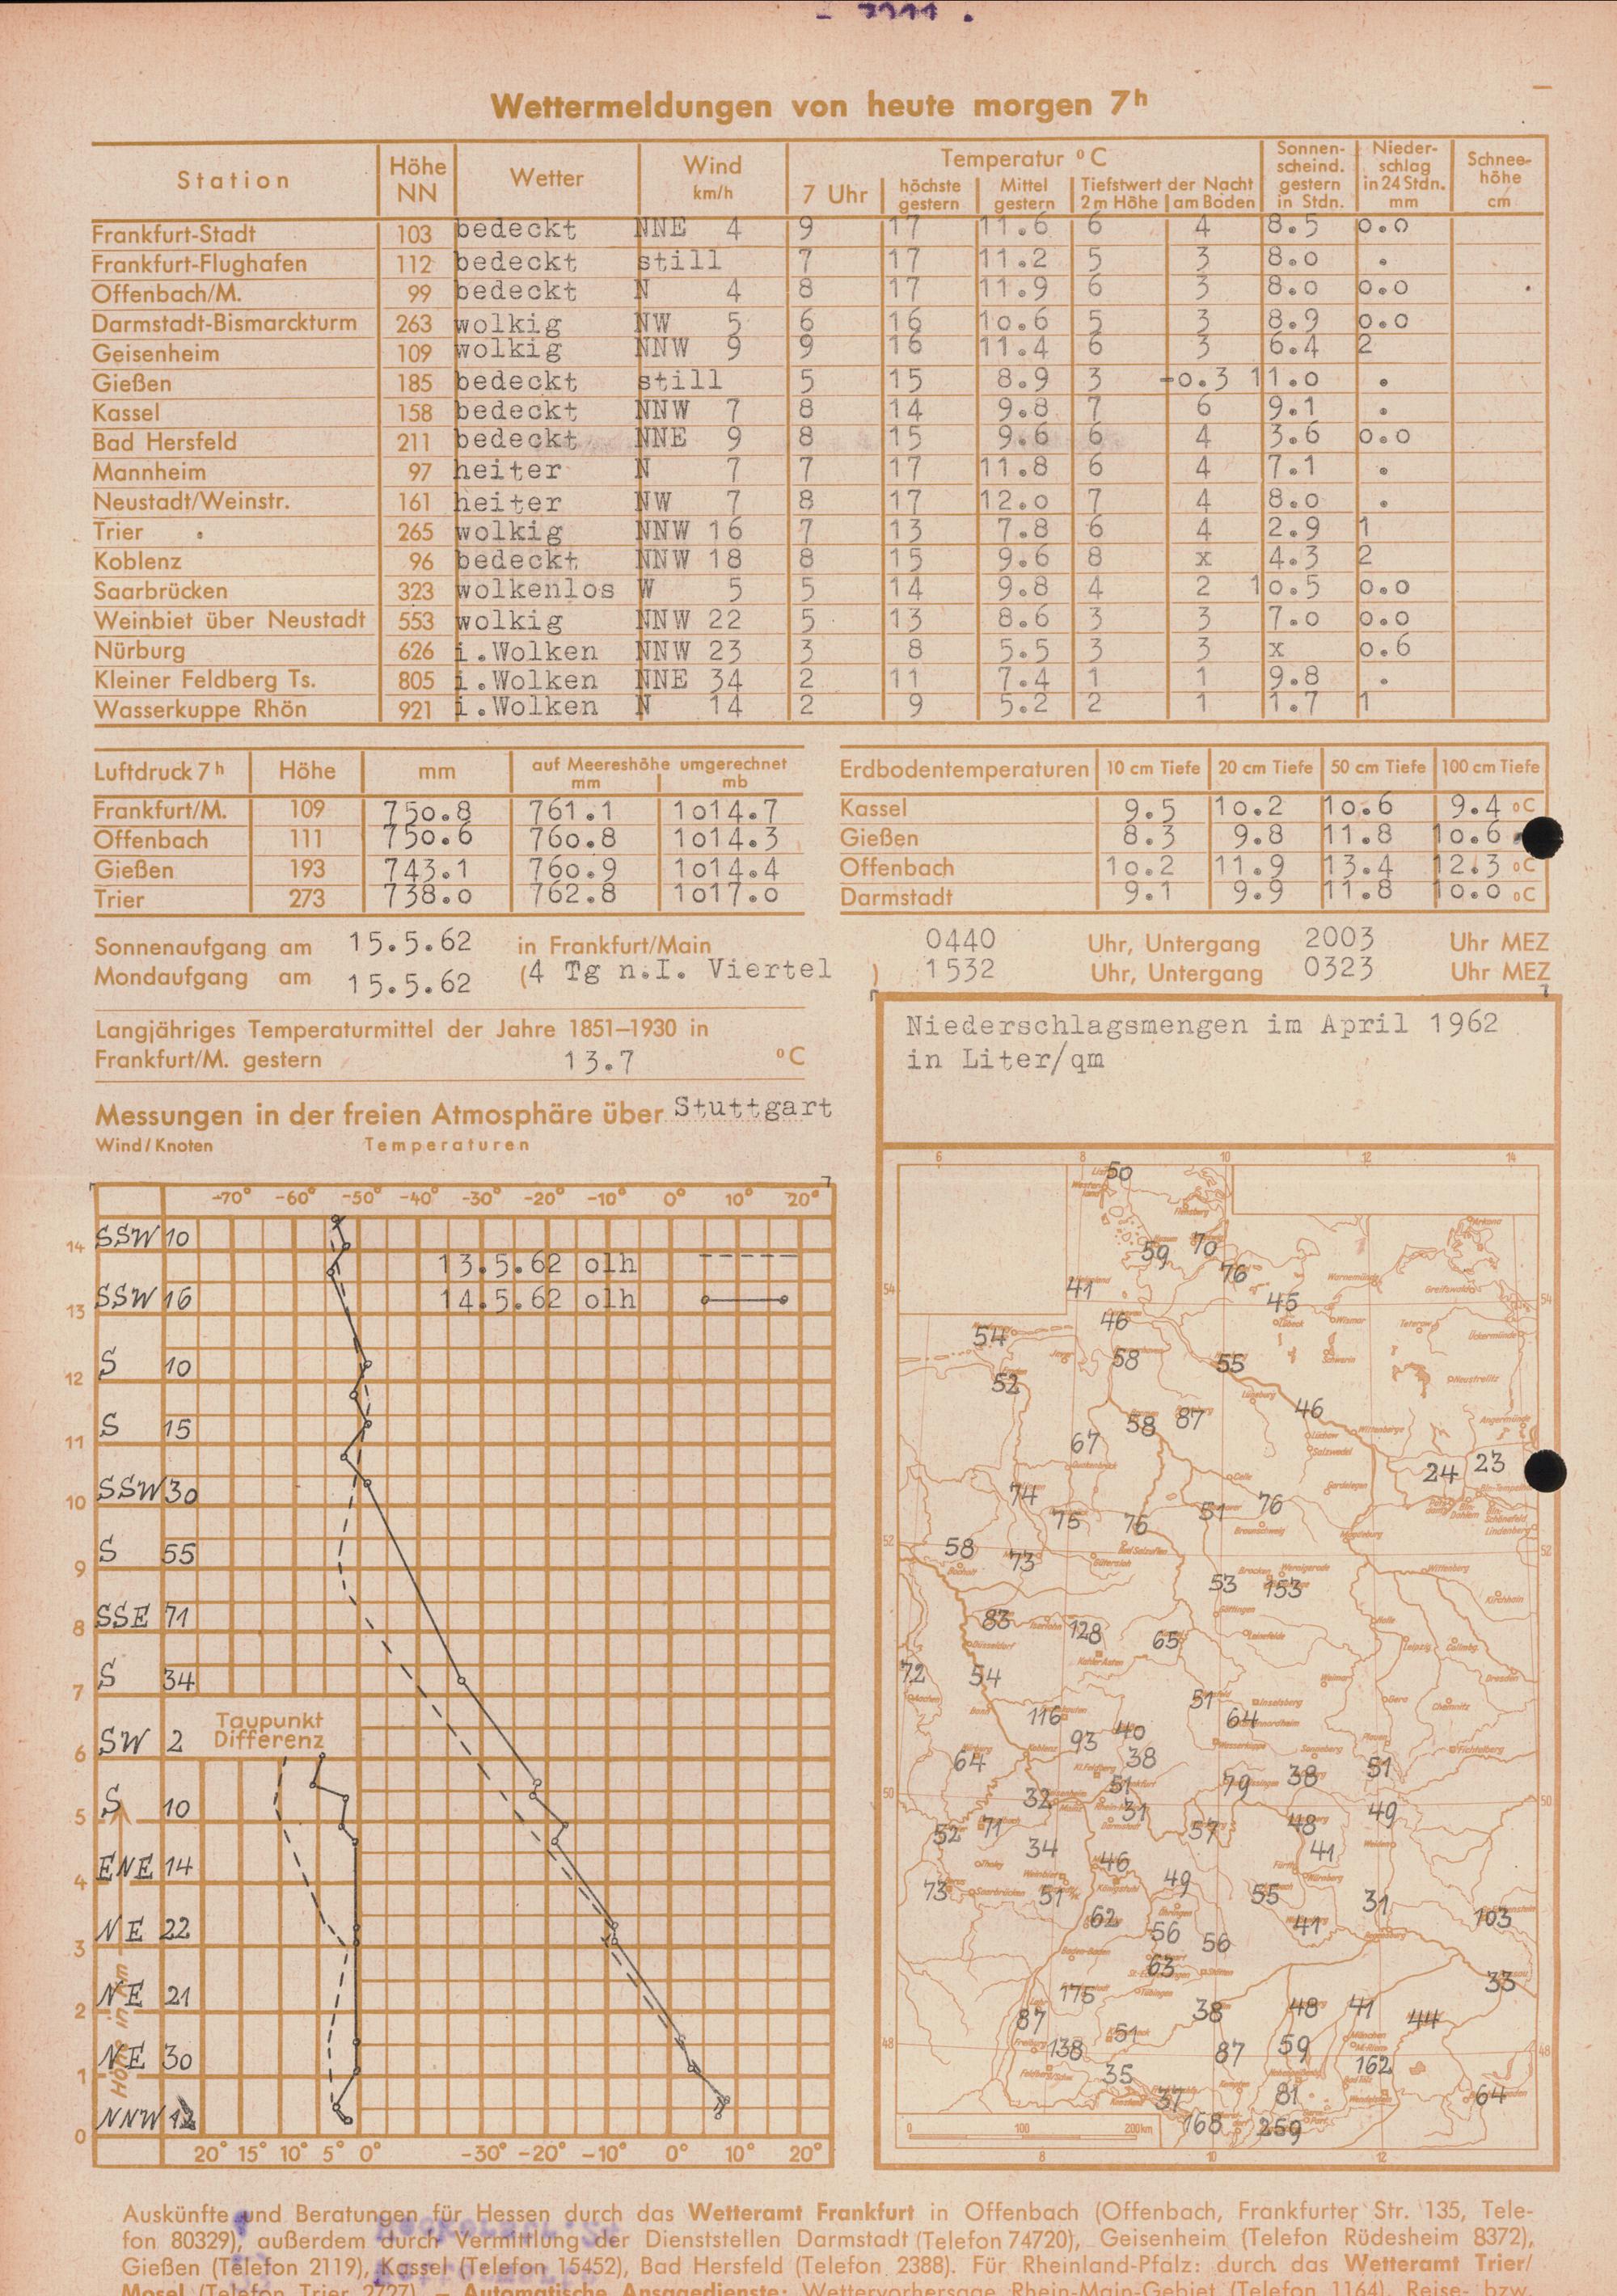 Wettermeldungen von heute morgen 7h
Station Höhe NN Wetter Wind km/h Temperatur °C 7 Uhr höchste gestern Mittel gestern Tiefstwert der Nacht 2 m Höhe am Boden Sonnenscheind. gestern in Stdn. Niederschlag in 24 Stdn. mm Schneehöhe cm
Frankfurt-Stadt 103 bedeckt NNE 4 9 17 11.6 6 4 8.5 0.0
Frankfurt-Flughafen 112 bedeckt still 7 17 11.2 5 3 8.0 .
Offenbach/M. 99 bedeckt N 4 8 17 11.9 6 3 8.0 0.0 .
Darmstadt-Bismarckturm 263 wolkig NW 5 6 16 10.6 5 3 8.9 0.0
Geisenheim 109 wolkig NNW 9 9 16 11.4 6 3 6.4 2
Gießen 185 bedeckt still 5 15 8.9 3 -0.3 11.0 .
Kassel 158 bedeckt NNW 7 8 14 9.8 7 6 9.1 .
Bad Hersfeld 211 bedeckt NNE 9 8 15 9.6 6 4 3.6 0.0
Mannheim 97 heiter N 7 7 17 11.8 6 4 7.1 .
Neustadt/Weinstr. 161 heiter NW 7 8 17 12.0 7 4 8.0 .
Trier 265 wolkig NNW 16 7 13 7.8 6 4 2.9 1
Koblenz 96 bedeckt NNW 18 8 15 9.6 8 x 4.3 2
Saarbrücken 323 wolkenlos W 5 5 14 9.8 4 2 10.5 0.0
Weinbiet über Neustadt 553 wolkig NNW 22 5 13 8.6 3 3 7.0 0.0
Nürburg 626 i.Wolken NNW 23 3 8 5.5 3 3 x 0.6
Kleiner Feldberg Ts. 805 i.Wolken NNE 34 2 11 7.4 1 1 9.8 .
Wasserkuppe Rhön 921 i.Wolken N 14 2 9 5.2 2 1 1.7 1
Luftdruck 7h Höhe mm auf Meereshöhe umgerechnet mm mb
Frankfurt/M. 109 750.8 761.1 1014.7
Offenbach 111 750.6 760.8 1014.3
Gießen 193 743.1 760.9 1014.4
Trier 273 738.0 762.8 1017.0
Erdbodentemperaturen 10 cm Tiefe 20 cm Tiefe 50 cm Tiefe 100 cm Tiefe
Kassel 9.5 10.2 10.6 9.4 °C
Gießen 8.3 9.8 11.8 10.6
Offenbach 10.2 11.9 13.4 12.3 °C
Darmstadt 9.1 9.9 11.8 10.0 °C
Sonnenaufgang am 15.5.62 in Frankfurt/Main 0440 Uhr, Untergang 2003 Uhr MEZ
Mondaufgang am 15.5.62 (4 Tg n.I. Viertel ) 1532 Uhr, Untergang 0323 Uhr MEZ
Langjähriges Temperaturmittel der Jahre 1851–1930 in
Frankfurt/M. gestern 13.7 °C
Messungen in der freien Atmosphäre über Stuttgart
Wind/Knoten Temperaturen
-70° -60° -50° -40° -30° -20° -10° 0° 10° 20°
14 SSW 10
13.5.62 01h
13 SSW 16 14.5.62 01h
12 S 10
11 S 15
10 SSW 30
9 S 55
8 SSE 71
7 S 34
Taupunkt
Differenz
6 SW 2
5 S 10
4 ENE 14
3 NE 22
2 NE 21
1 NE 30
0 NNW
Höhe in km
20° 15° 10° 5° 0° -30° -20° -10° 0° 10° 20°
Niederschlagsmengen im April 1962
in Liter/qm
6 8 10 12 14
50
59 70
41 76
54 45 54
46
54
58 55
52
46
58 87
67
24 23
74 76
75 76 51
52 58 73 52
53 153
83 128 65
72 54
51 64
116 93 40
64 38
51 79 38 51
50 32 31 49 50
52 71 57 48
34 41
46
73 51 49 55 31
62 56 41 103
56
63 33
175
87 38 48 41 44
48 51 48
138 87 59 162
35
37 81 64
168 259
0 100 200km
8 10 12
Auskünfte und Beratungen für Hessen durch das Wetteramt Frankfurt in Offenbach (Offenbach, Frankfurter Str. 135, Tele-
fon 80329), außerdem durch Vermittlung der Dienststellen Darmstadt (Telefon 74720), Geisenheim (Telefon Rüdesheim 8372),
Gießen (Telefon 2119), Kassel (Telefon 15452), Bad Hersfeld (Telefon 2388). Für Rheinland-Pfalz: durch das Wetteramt Trier/
Mosel (Telefon Trier 2727). — Automatische Ansagedienste: Wettervorhersage Rhein-Main-Gebiet (Telefon 1164), Reise- bzw.